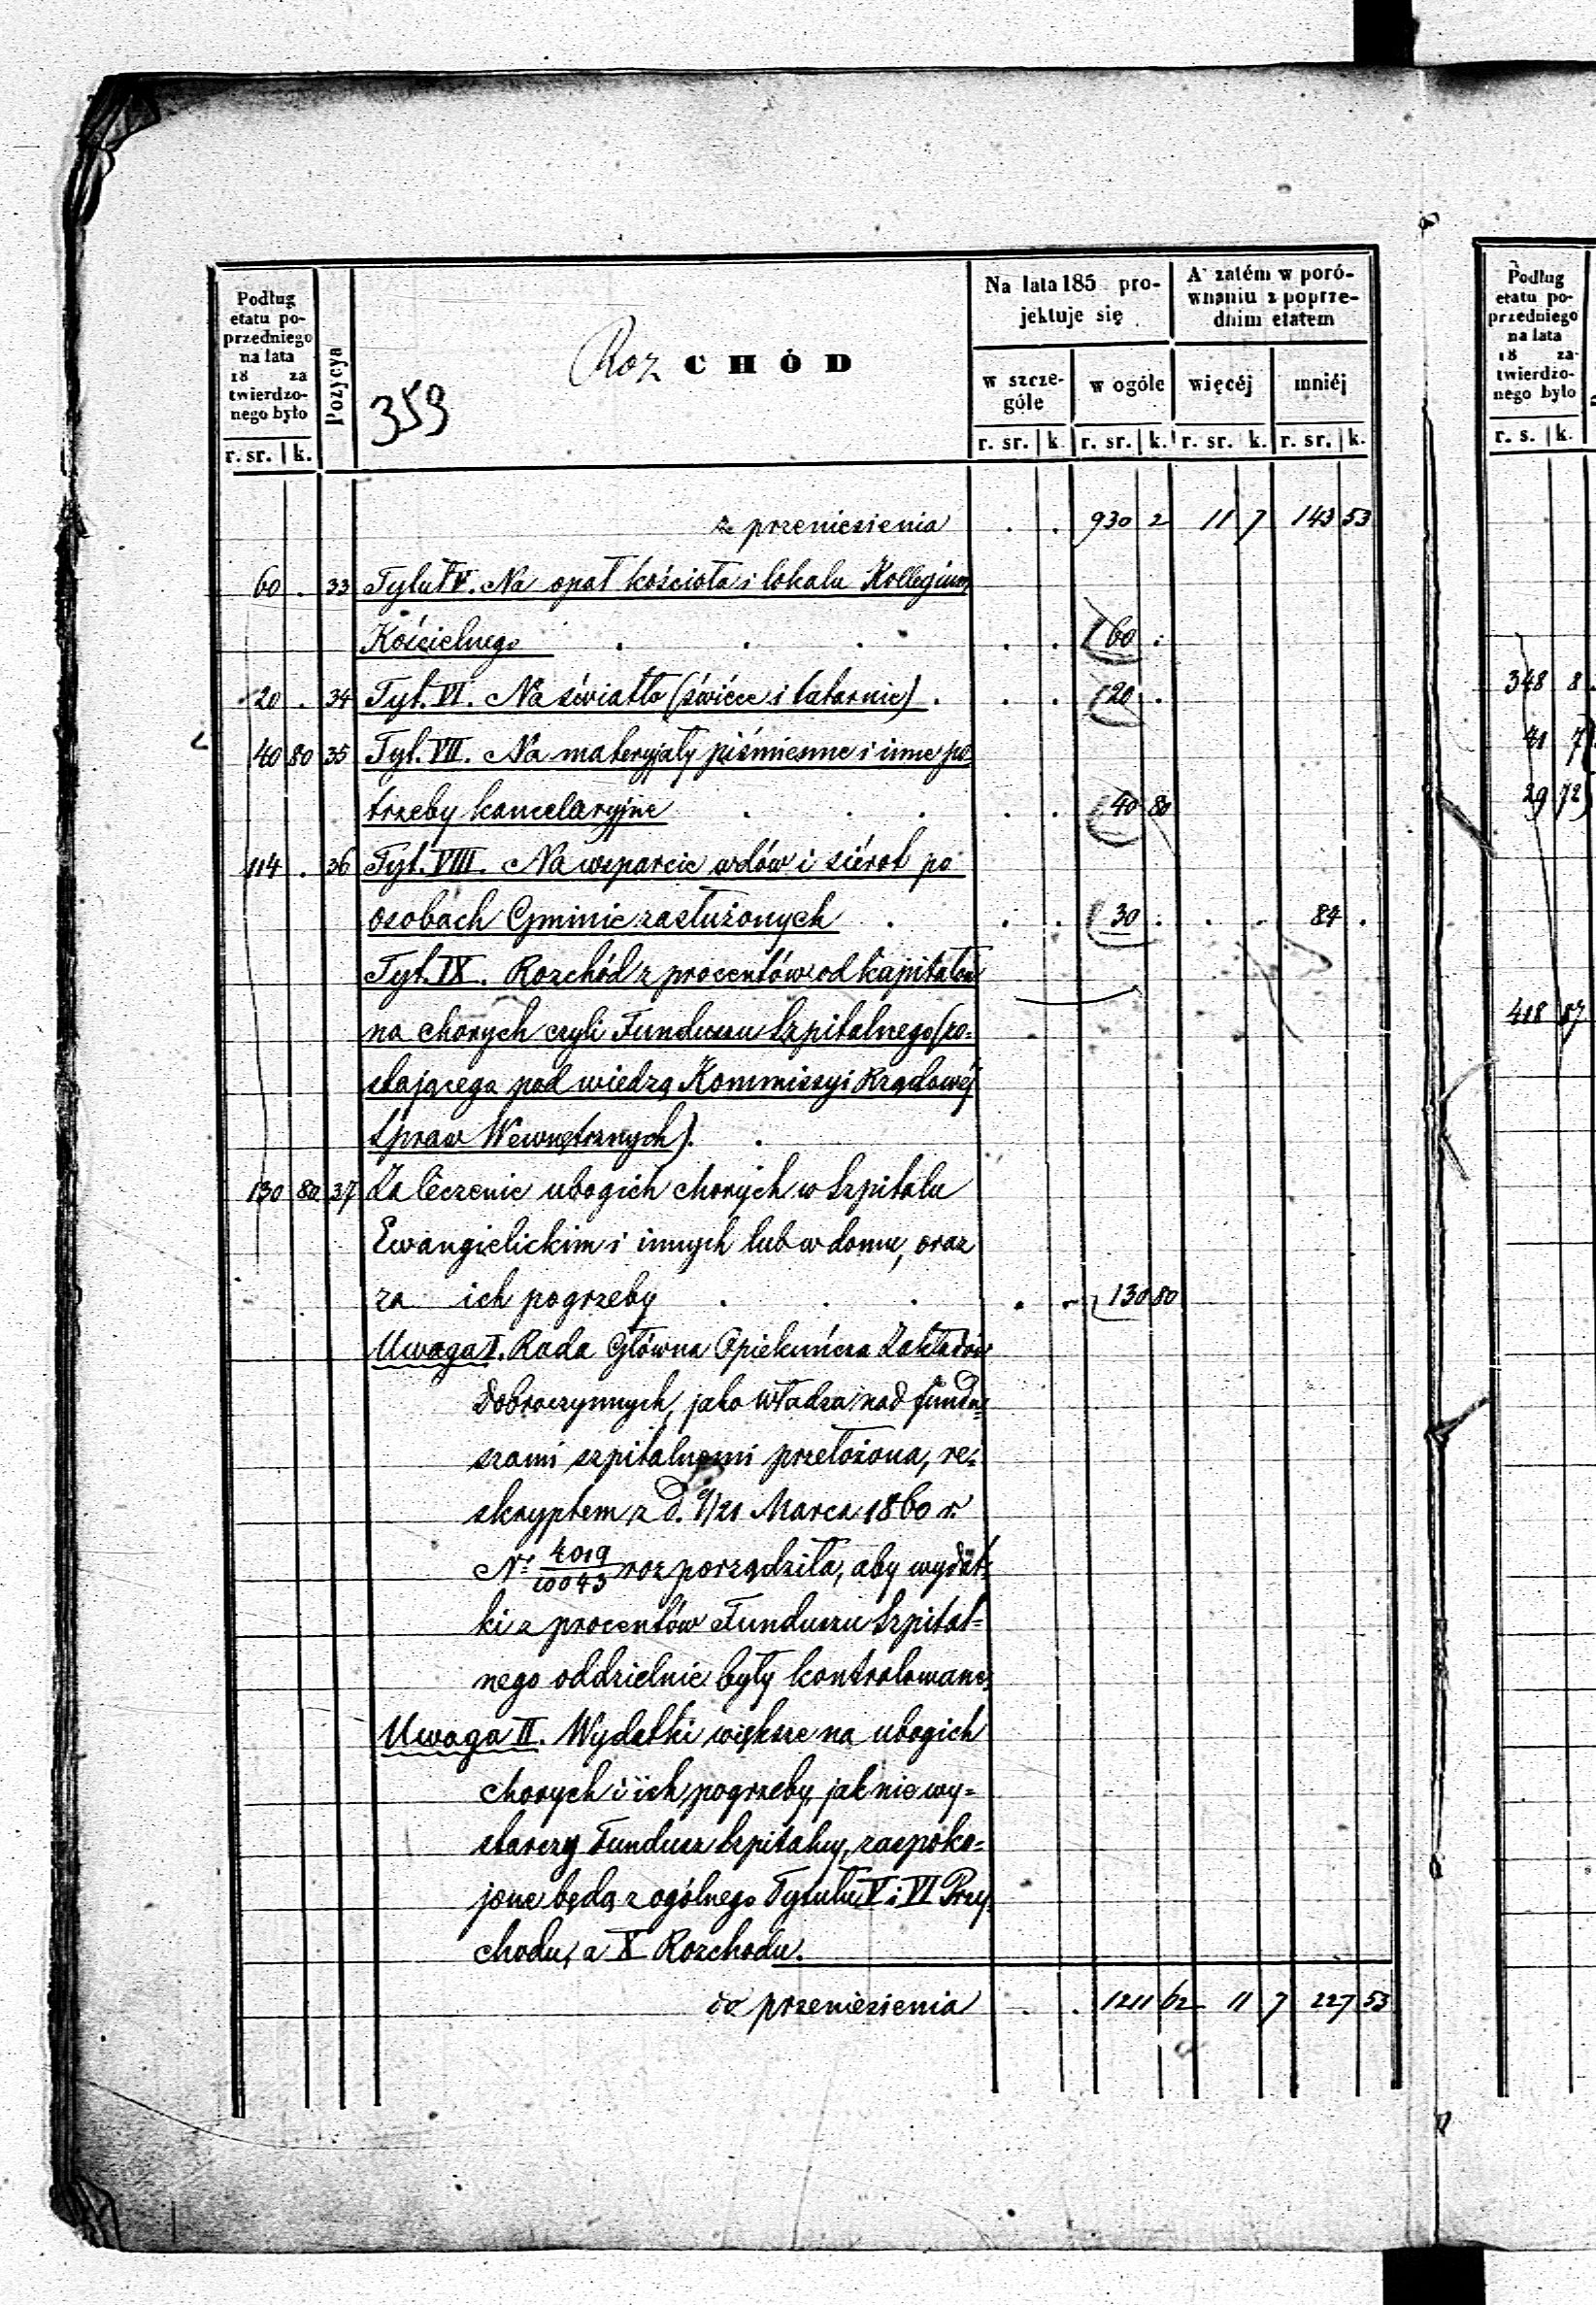 Podług etatu poprzedniego na lata 18 zatwierdzonego było
r. sr. k.
Pozycya
Roz CHÓD
359
Na lata 185 projektuje się
w szczególe
w ogóle
r. sr. k. r. sr. k.
A zatém w porównaniu z poprzednim etatem
więcéj
mniéj
r. sr. k. r. sr. k.
z przeniesienia . . 930 2 11 7 143 53
60 . 33 Tytuł V. Na opał kościoła i lokalu Kollegium
Kościelnego . . . . . 60 .
20 . 34 Tyt. VI. Na światło (świéce i latarnie) . . . 20 .
40 80 35 Tyt. VII. Na materyjały piśmienne i inne po-
trzeby kancelaryjne . . . . . 40 80
114 . 36 Tyt. VIII. Na wsparcie wdów i siérot po
osobach Gminie zasłużonych . . . 30 . . . 84 .
Tyt. IX. Rozchód z procentów od kapitałów
na chorych czyli Funduszu Szpitalnego (zo-
stającego pod wiedzą Kommissyi Rządowéj
Spraw Wewnętrznych). .
130 80 37 Za léczenie ubogich chorych w Szpitalu
Ewangielickim i innych lub w domu, oraz
za ich pogrzeby . . . . . 130 80
Uwaga I. Rada Główna Opiekuńcza Zakładów
Dobroczynnych, jako Władza nad fundu-
szami szpitalnemi przełożona, re-
skryptem z d. 9/21 Marca 1860 r.
Nr 4019/10043 rozporządziła, aby wydat-
ki z procentów Funduszu Szpital-
nego oddzielnie były kontrolowane.
Uwaga II. Wydatki większe na ubogich
chorych i ich pogrzeby, jak nie wy-
starczy Fundusz Szpitalny, zaspoko-
jone będą z ogólnego Tytułu V i VI Przy-
chodu, a X Rozchodu.
do przeniesienia . . 1211 62 11 7 227 53
Podług etatu poprzedniego na lata 18 zatwierdzonego było
r. s. k.
348 8
41 7
29 72
418 87